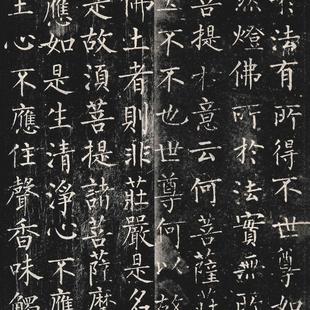 於法有所得不世尊如
然燈佛所於法實無所
菩提於意云何菩薩莊
土不不也世尊何以故
佛土者則非莊嚴是名
是故須菩提諸菩薩摩
應如是生清淨心不應
生心不應住聲香味觸